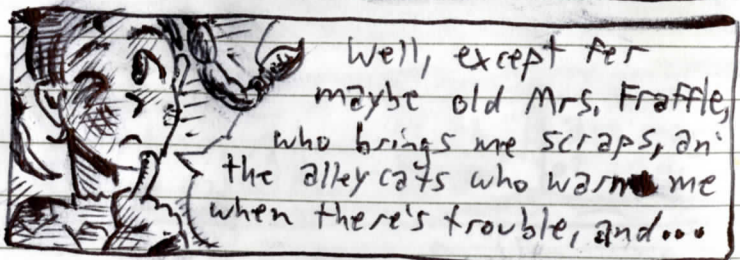 Well, except fer
maybe old Mrs. Fraffle,
who brings me scraps, an'
the alley cats who warn me
when there's trouble, and...